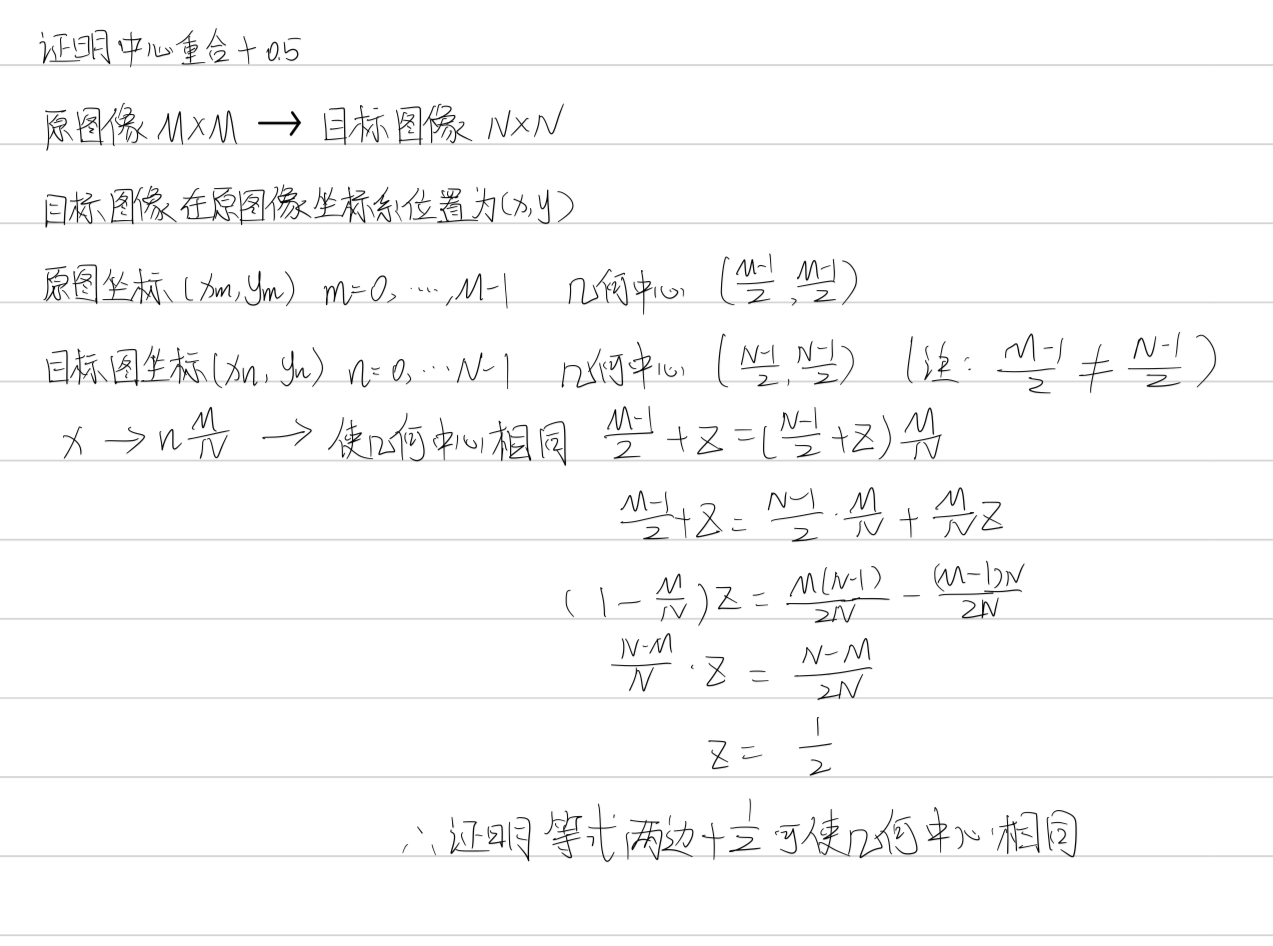 证明中心重合+0.5
原图像 M×M → 目标图像 N×N
目标图像在原图像坐标系位置为(x,y)
原图坐标(xm,ym) m=0,…,M-1 几何中心 (M-1/2, M-1/2)
目标图坐标(xn,yn) n=0,…N-1 几何中心 (N-1/2, N-1/2) (注: M-1/2 ≠ N-1/2)
x → n M/N → 使几何中心相同 M-1/2 + Z = (N-1/2 + Z) M/N
M-1/2 + Z = N-1/2 · M/N + M/N Z
(1 - M/N) Z = M(N-1)/2N - (M-1)N/2N
N-M/N · Z = N-M/2N
Z = 1/2
∴ 证明等式两边+1/2可使几何中心相同